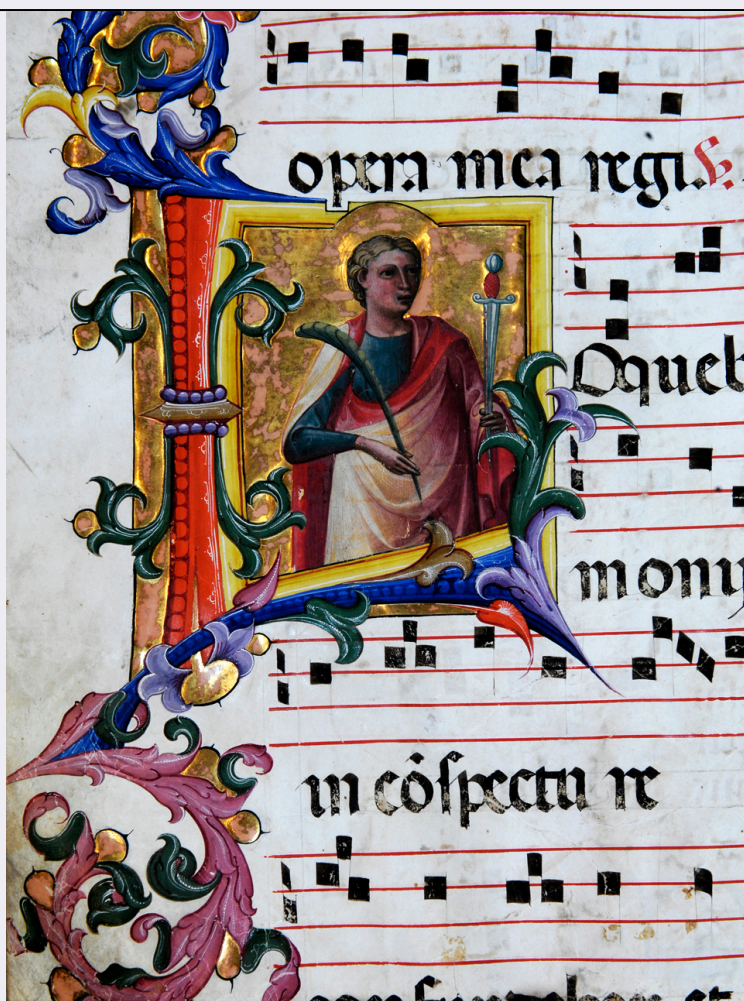 opera mea regi. V.
Loqueb
mony
in cōspectu re